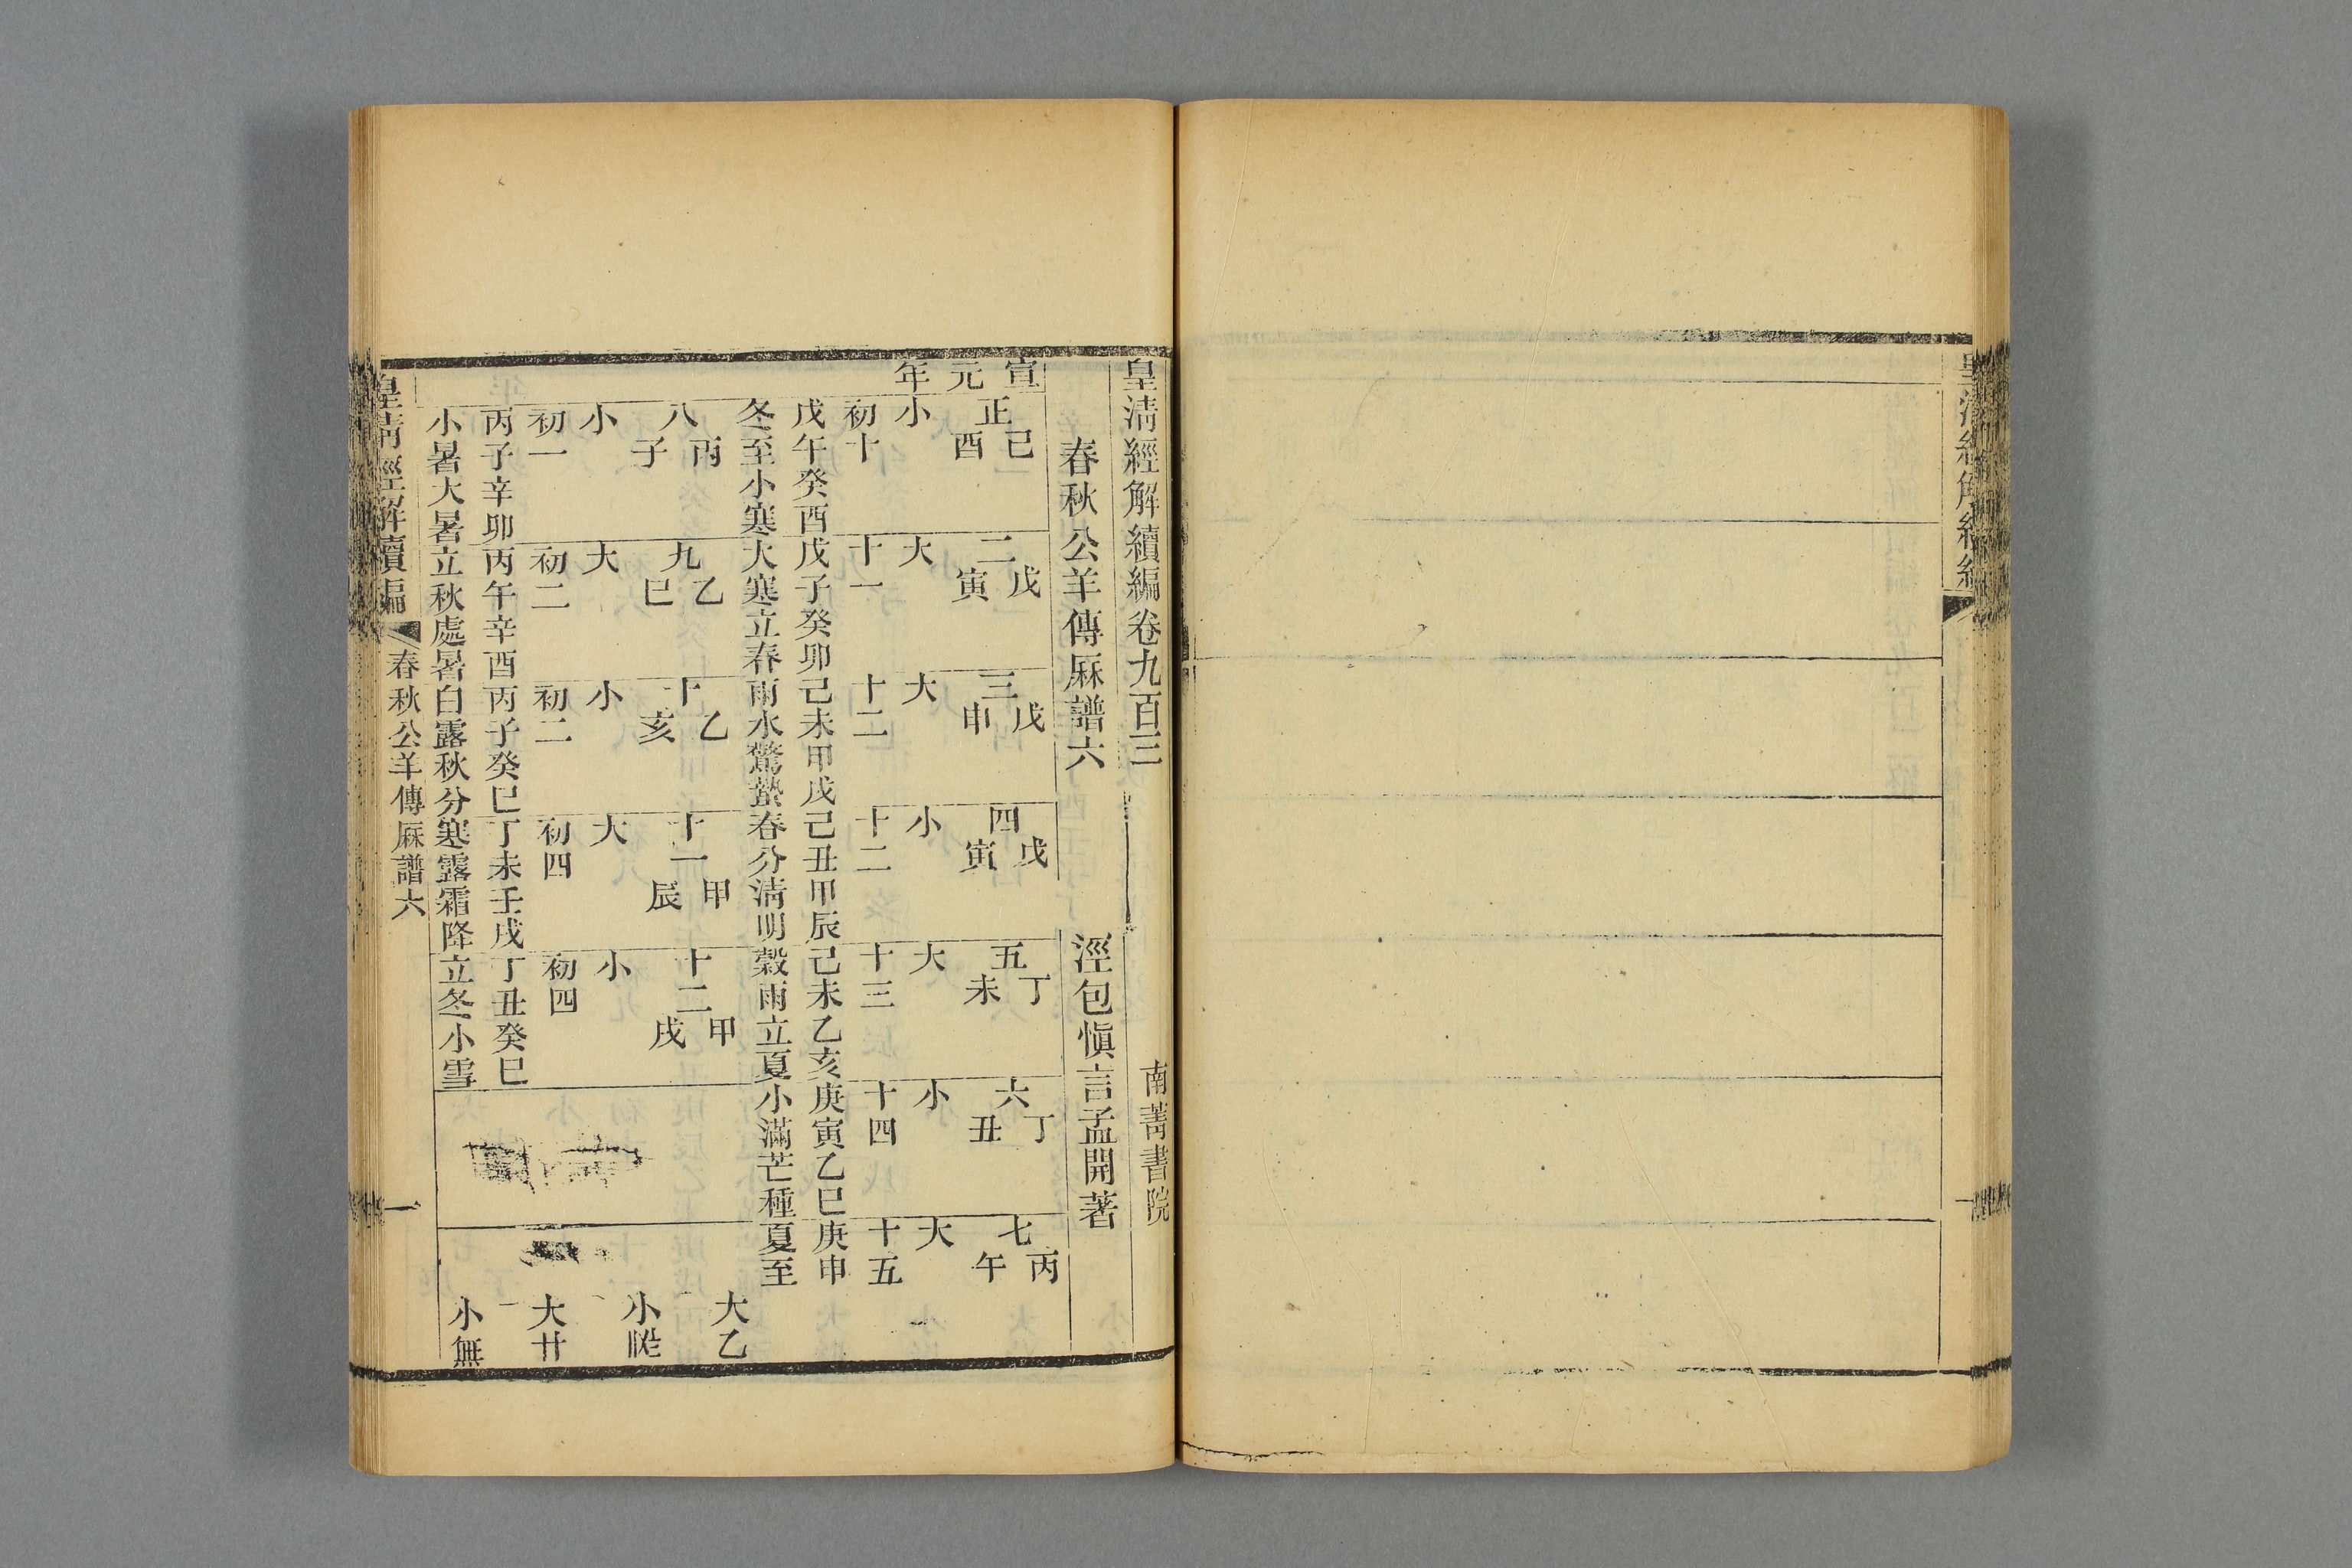 皇清經解續編卷九百三
南菁書院
春秋公羊傳厤譜六
涇包愼言孟開著
宣元年
正 己酉 小 初十 戊午癸酉 冬至小寒
二 戊寅 大 十一 戊子癸卯 大寒立春
三 戊申 大 十二 己未甲戌 雨水驚蟄
四 戊寅 小 十二 己丑甲辰 春分淸明
五 丁未 大 十三 己未乙亥 穀雨立夏
六 丁丑 小 十四 庚寅乙巳 小滿芒種
七 丙午 大 十五 庚申 夏至
八 丙子 小 初一 丙子辛卯 小暑大暑
九 乙巳 大 初二 丙午辛酉 立秋處暑
十 乙亥 小 初二 丙子癸巳 白露秋分
十一 甲辰 大 初四 丁未壬戌 寒露霜降
十二 甲戌 小 初四 丁丑癸巳 立冬小雪
大乙
小
大廿
小無
皇清經解續編
春秋公羊傳厤譜六
一